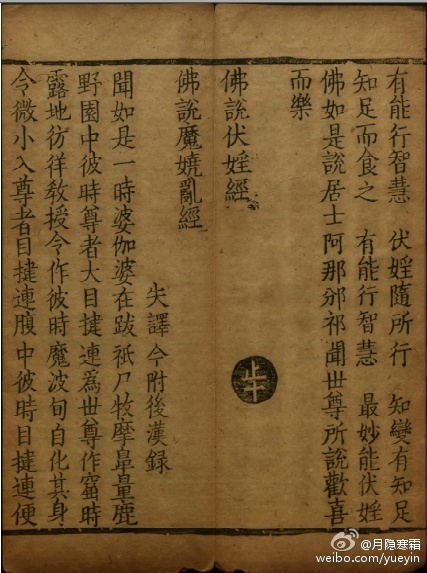 有能行智慧　伏婬隨所行　知變有知足
知足而食之　有能行智慧　最妙能伏婬
佛如是說居士阿那邠祁聞世尊所說歡喜
而樂
佛說伏婬經
佛說魔嬈亂經
失譯今附後漢錄
聞如是一時婆伽婆在跋祇尸牧摩鼻量鹿
野園中彼時尊者大目揵連爲世尊作窟時
露地彷徉教授令作彼時魔波旬自化其身
令微小入尊者目揵連腹中彼時目揵連便
@月隐寒霜
weibo.com/yueyin